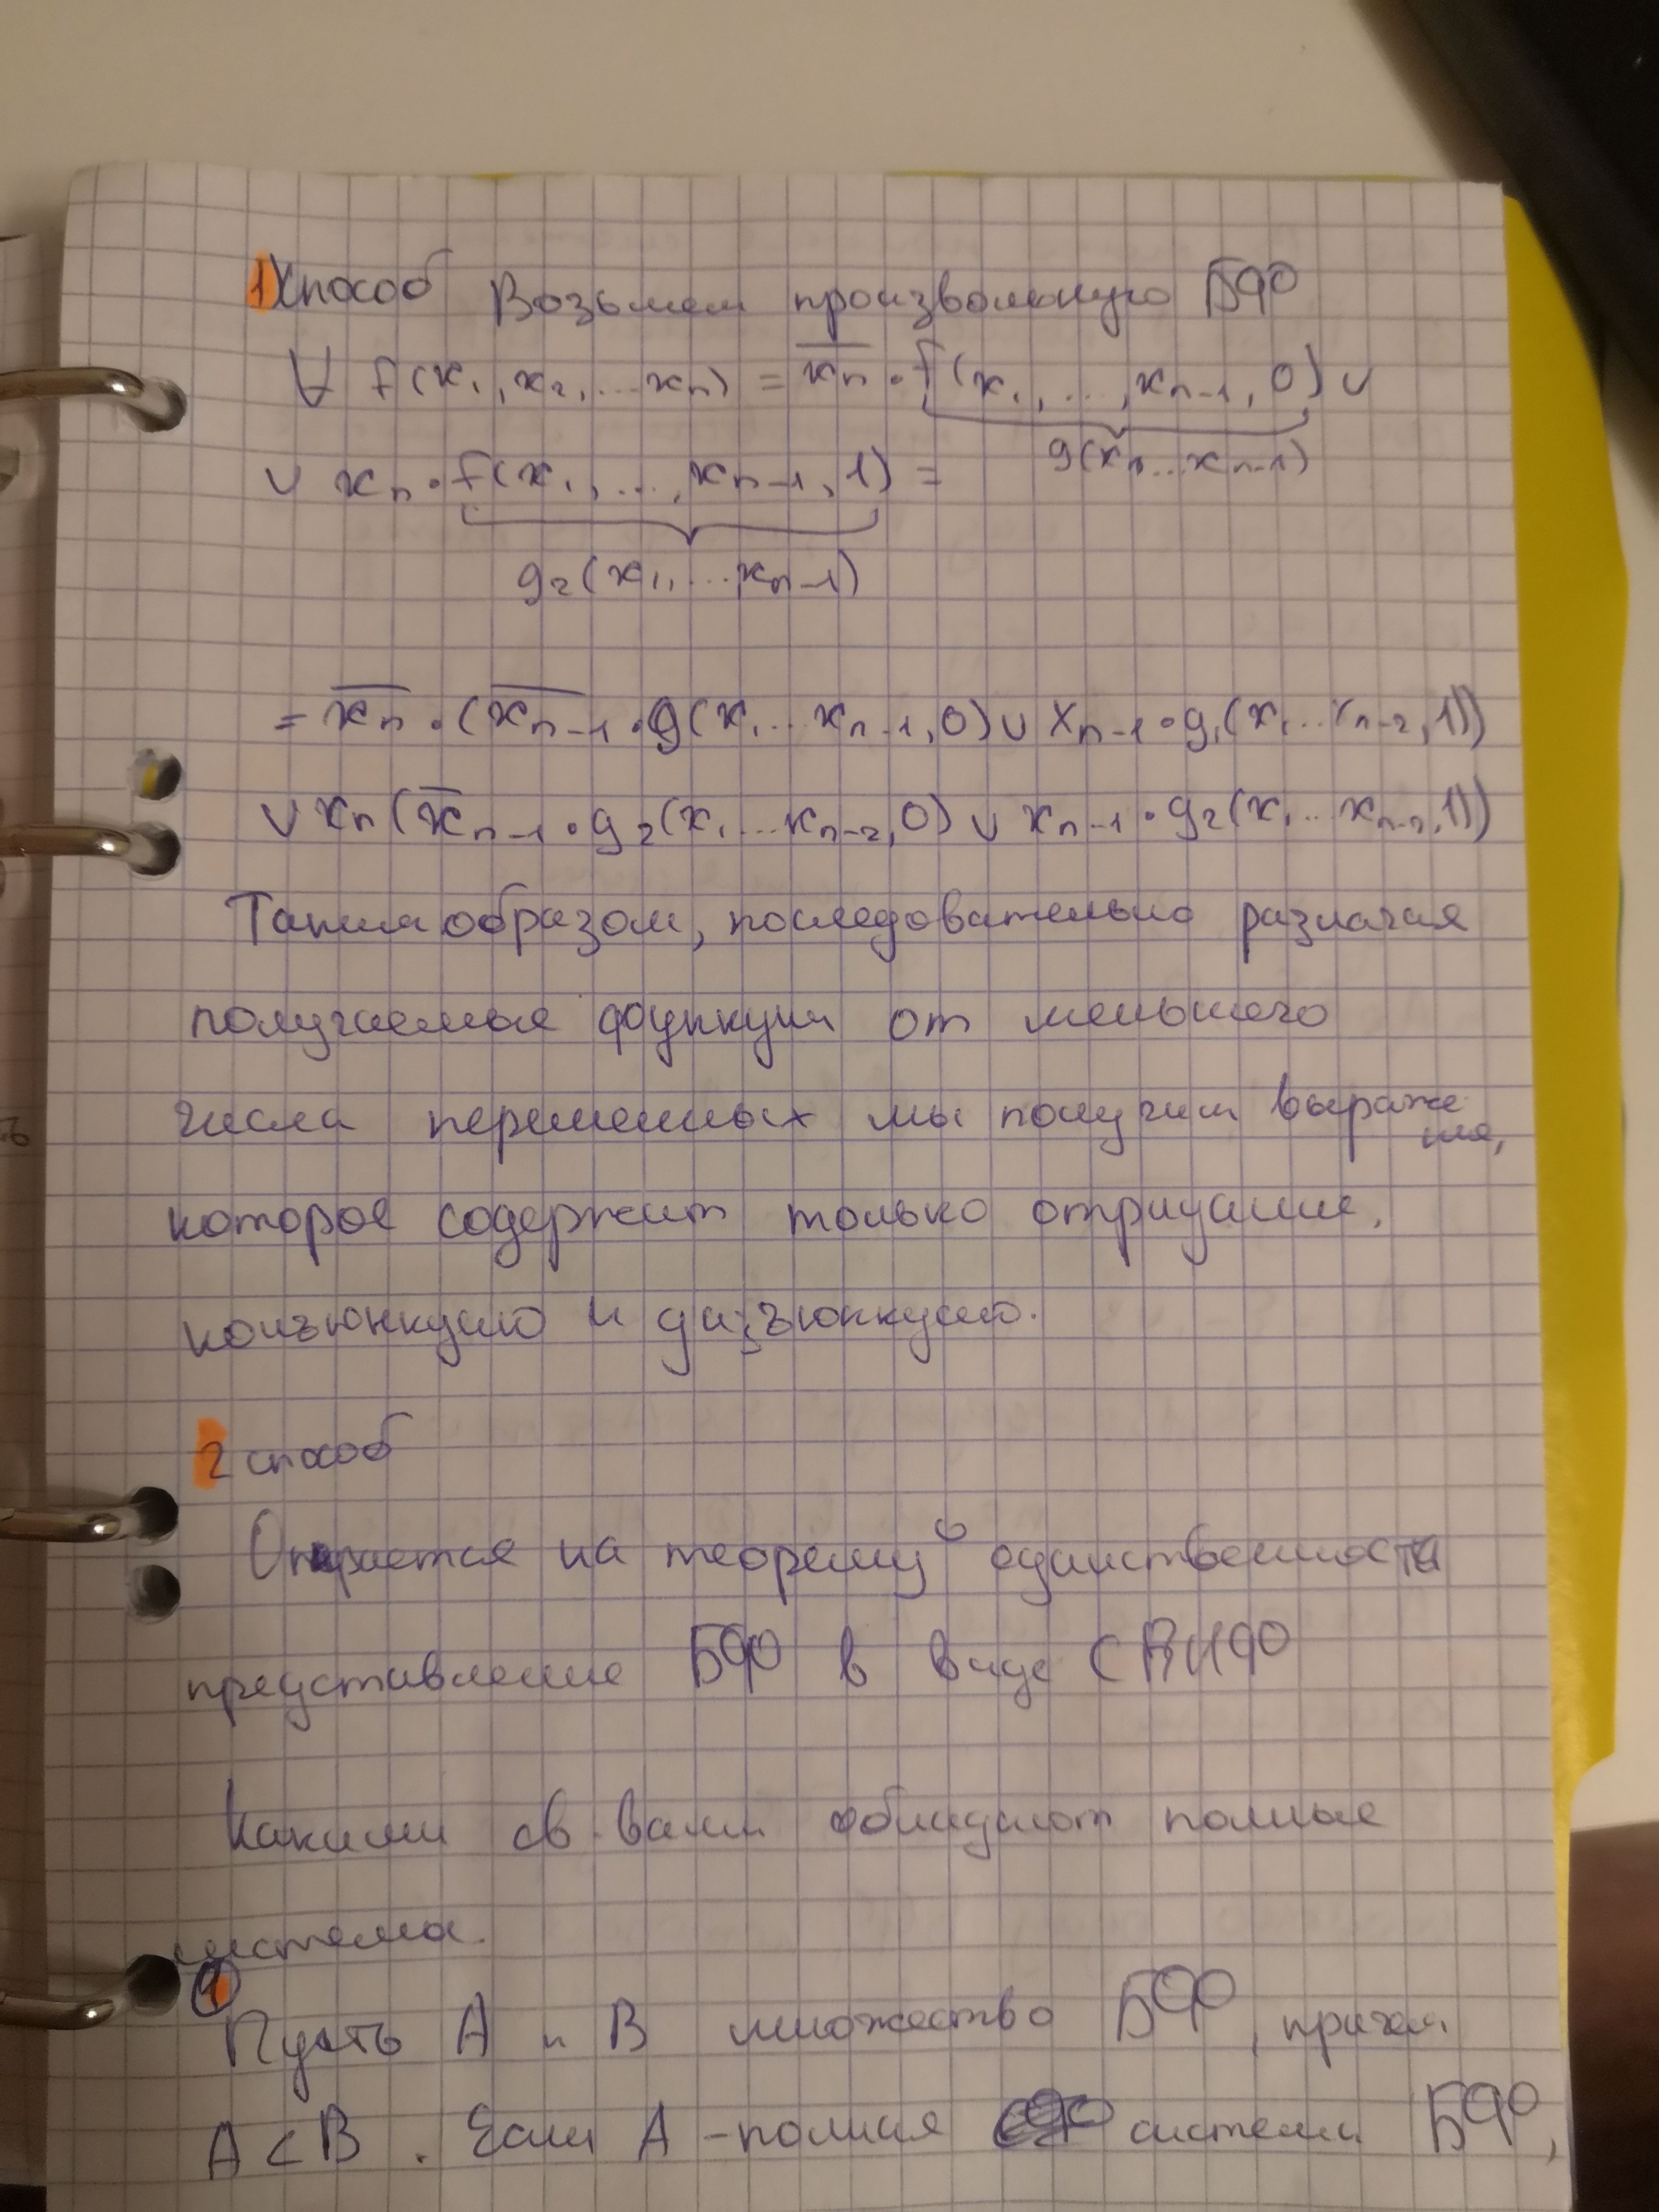 1) Способ Возьмем произвольную БФ
∀ f(x₁, x₂, ... xₙ) = x̅ₙ · f(x₁, ..., xₙ₋₁, 0) ∨
∨ xₙ · f(x₁, ..., xₙ₋₁, 1) =
g(x₁...xₙ₋₁)
g₂(x₁, ... xₙ₋₁)
= x̅ₙ · (x̅ₙ₋₁ · g(x₁ ... xₙ₋₁, 0) ∨ xₙ₋₁ · g₁(x₁ ... xₙ₋₂, 1))
∨ xₙ (x̅ₙ₋₁ · g₂(x₁ ... xₙ₋₂, 0) ∨ xₙ₋₁ · g₂(x₁ ... xₙ₋₂, 1))
Таким образом, последовательно разлагая
получаемые функции от меньшего
числа переменных мы получим выраже
ние,
которое содержит только отрицание,
конъюнкцию и дизъюнкцию.
2 способ
Опирается на теорему о единственности
представление БФ в виде
Какими св-вами обладают полные
система.
1
Пусть A и B множество БФ, причем
A ⊂ B. Если A - полная система БФ,